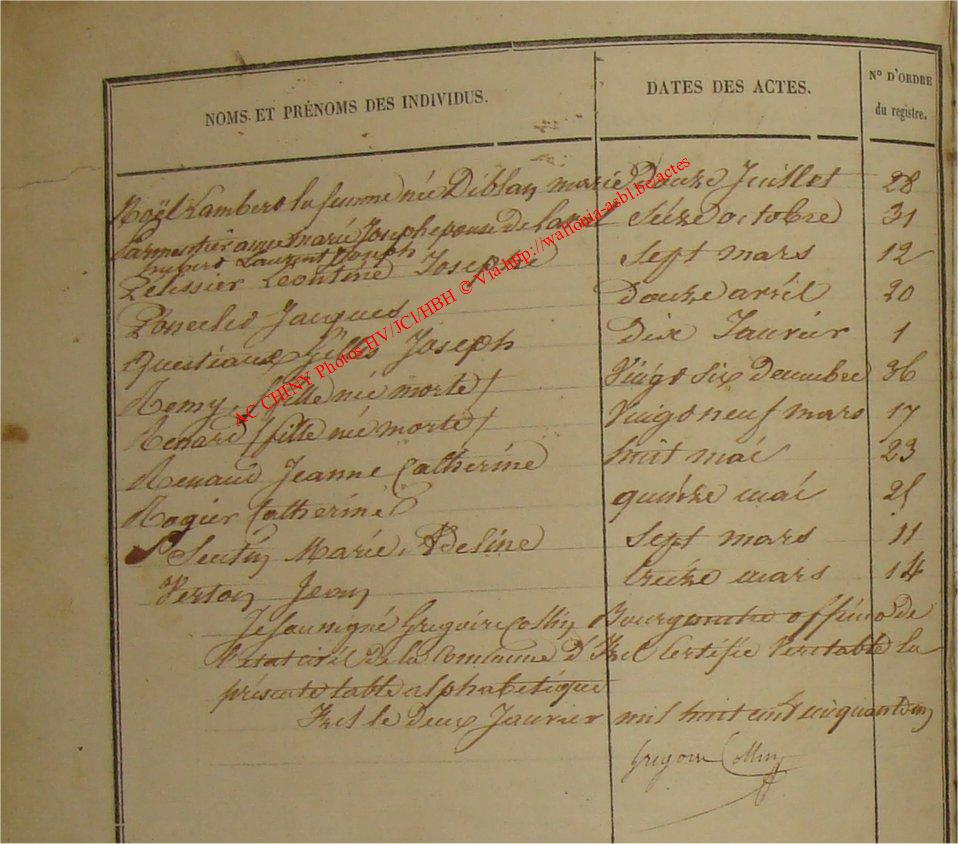 NOMS ET PRÉNOMS DES INDIVIDUS. DATES DES ACTES. N° D'ORDRE du registre.
Noël Lambert la femme née Diblan marie Douze Juillet 28
Parmentier anne marie Joseph epouse de Seize octobre 31
hubert Laurent Joseph
Pelissier Leontine Josephe Sept mars 12
Jacques Douze avril 20
Questiaux Gilles Joseph Dix Janvier 1
Remy, (fille née morte) Vingt six Decembre 36
Renard (fille née morte) Vingt neuf mars 17
Renaud Jeanne Catherine huit mai 23
Rogier Catherine quinze mai 25
Marie, Adeline Sept mars 11
Jean treize mars 14
Je soussigné Grégoire Collin Bourgmestre officier de
l'état civil de la Commune d'Izel Certifie Veritable la
présente table alphabétique
Izel le Deux Janvier mil huit cent cinquante un
Gregoire Collin
AC CHINY Photos HV/JCl/HBH © Via http://wallonia-asbl.be/actes